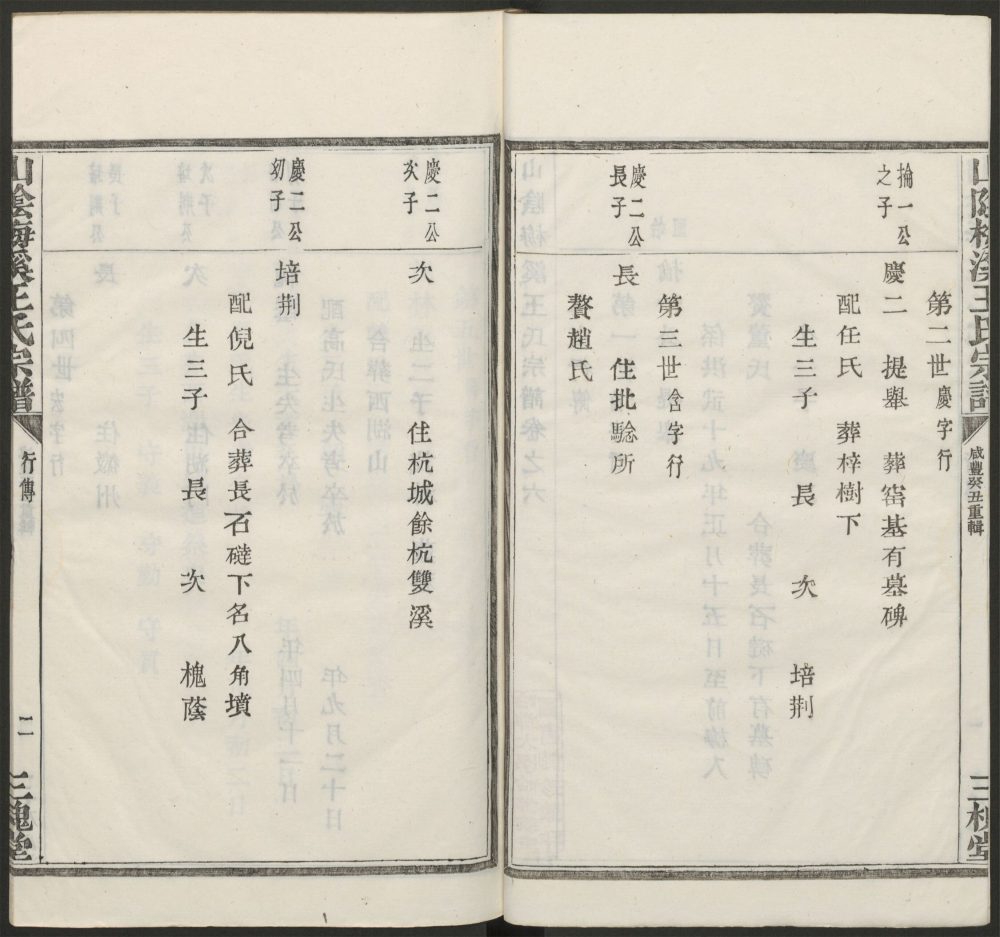 第二世慶字行
掄一公
之子
慶二 提舉 葬窑基有墓碑
配任氏 葬梓樹下
生三子 長 次 培荆
第三世含字行
慶二公
長子
長 住批騐所
贅趙氏
咸豐癸丑重輯
慶二公
次子
次 住杭城餘杭雙溪
慶二公
幼子
培荆
配倪氏 合葬長石磋下名八角墳
生三子 長 次 槐蔭
山陰梅溪王氏宗譜
行傳
二
三槐堂